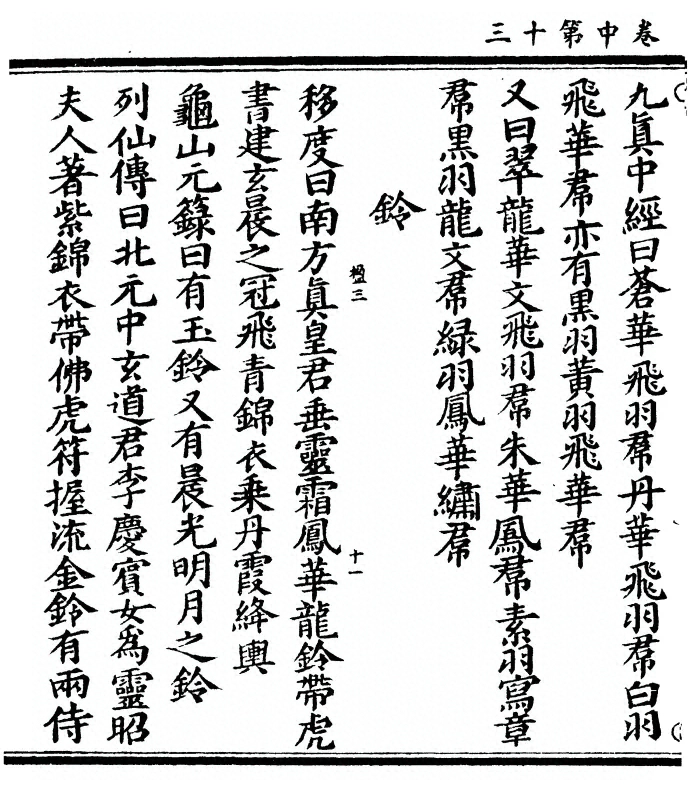 卷中第十三
九眞中經曰蒼華飛羽帬丹華飛羽帬白羽
飛華帬亦有黒羽黃羽飛華帬
又曰翠龍華文飛羽帬朱華鳳帬素羽寫章
帬黒羽龍文帬緑羽鳳華繡帬
鈴
楹三
十一
移度曰南方眞皇君垂靈霜鳳華龍鈴帶虎
書建玄晨之冠飛青錦衣乗丹霞絳輿
龜山元籙曰有玉鈴又有晨光明月之鈴
列仙傳曰北元中玄道君李慶賓女爲靈昭
夫人著紫錦衣帶佛虎符握流金鈴有兩侍